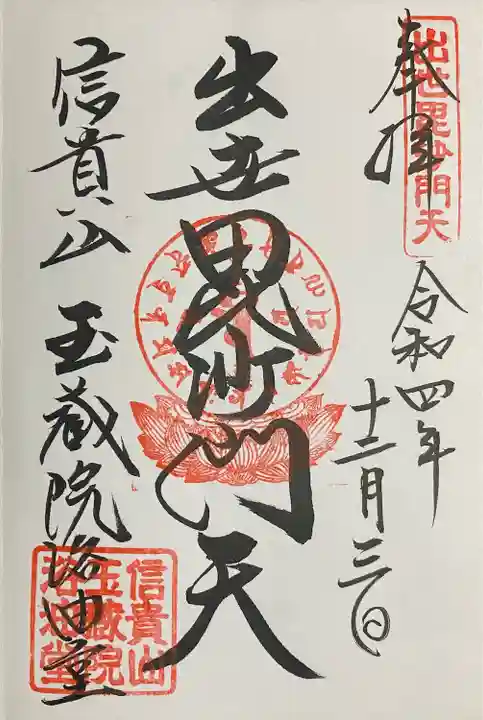 奉拝
出世毘沙門天
令和四年
十二月三日
出世毘沙門天
信貴山 玉蔵院浴油堂
信貴山
玉蔵院
浴油堂